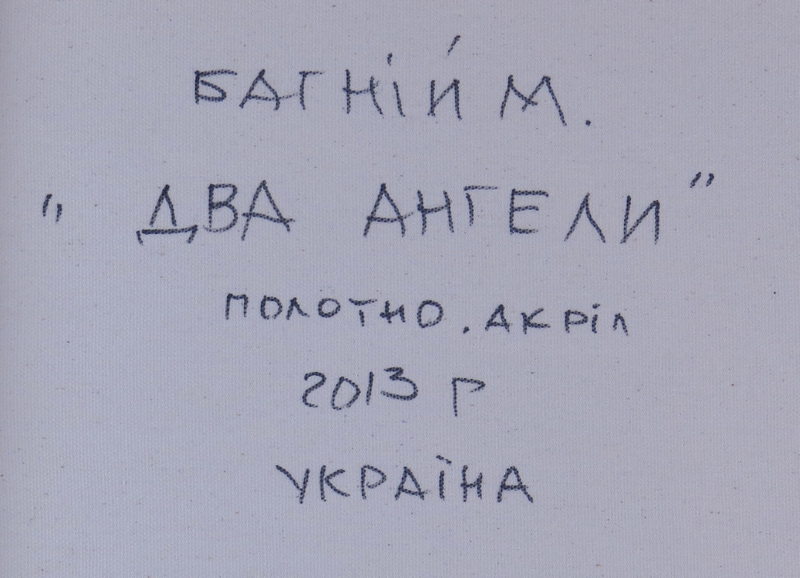 БАГНІЙ М.
"ДВА АНГЕЛИ"
ПОЛОТНО. АКРІЛ
2013 Г
УКРАЇНА